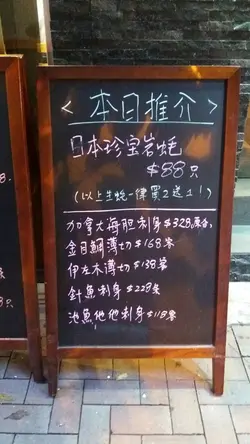 <本日推介>
日本珍宝岩蚝
$88只
(以上生蚝一律買2送1!)
加拿大海胆刺身$328
金目鯛薄切$168客
伊左木薄切$138客
針魚刺身$228条
池魚他他刺身$118客